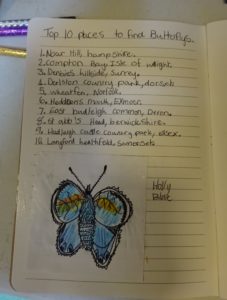 Top 10 places to find Buttoflys.
1. Noar Hill, hampshire.
2. Compton Bay, Isle of wight.
3. Denbies hillside, Surrey.
4. Durlston country park, dorset
5. wheatfen, Norfolk.
6. Heddons mouth, Exmoor.
7. East budleigh common, Devon.
8. St abb's Head, berwickshire.
9. Hadleigh castle country park, essex.
10. Langford heathfield, Somerset.
Holly
Blue